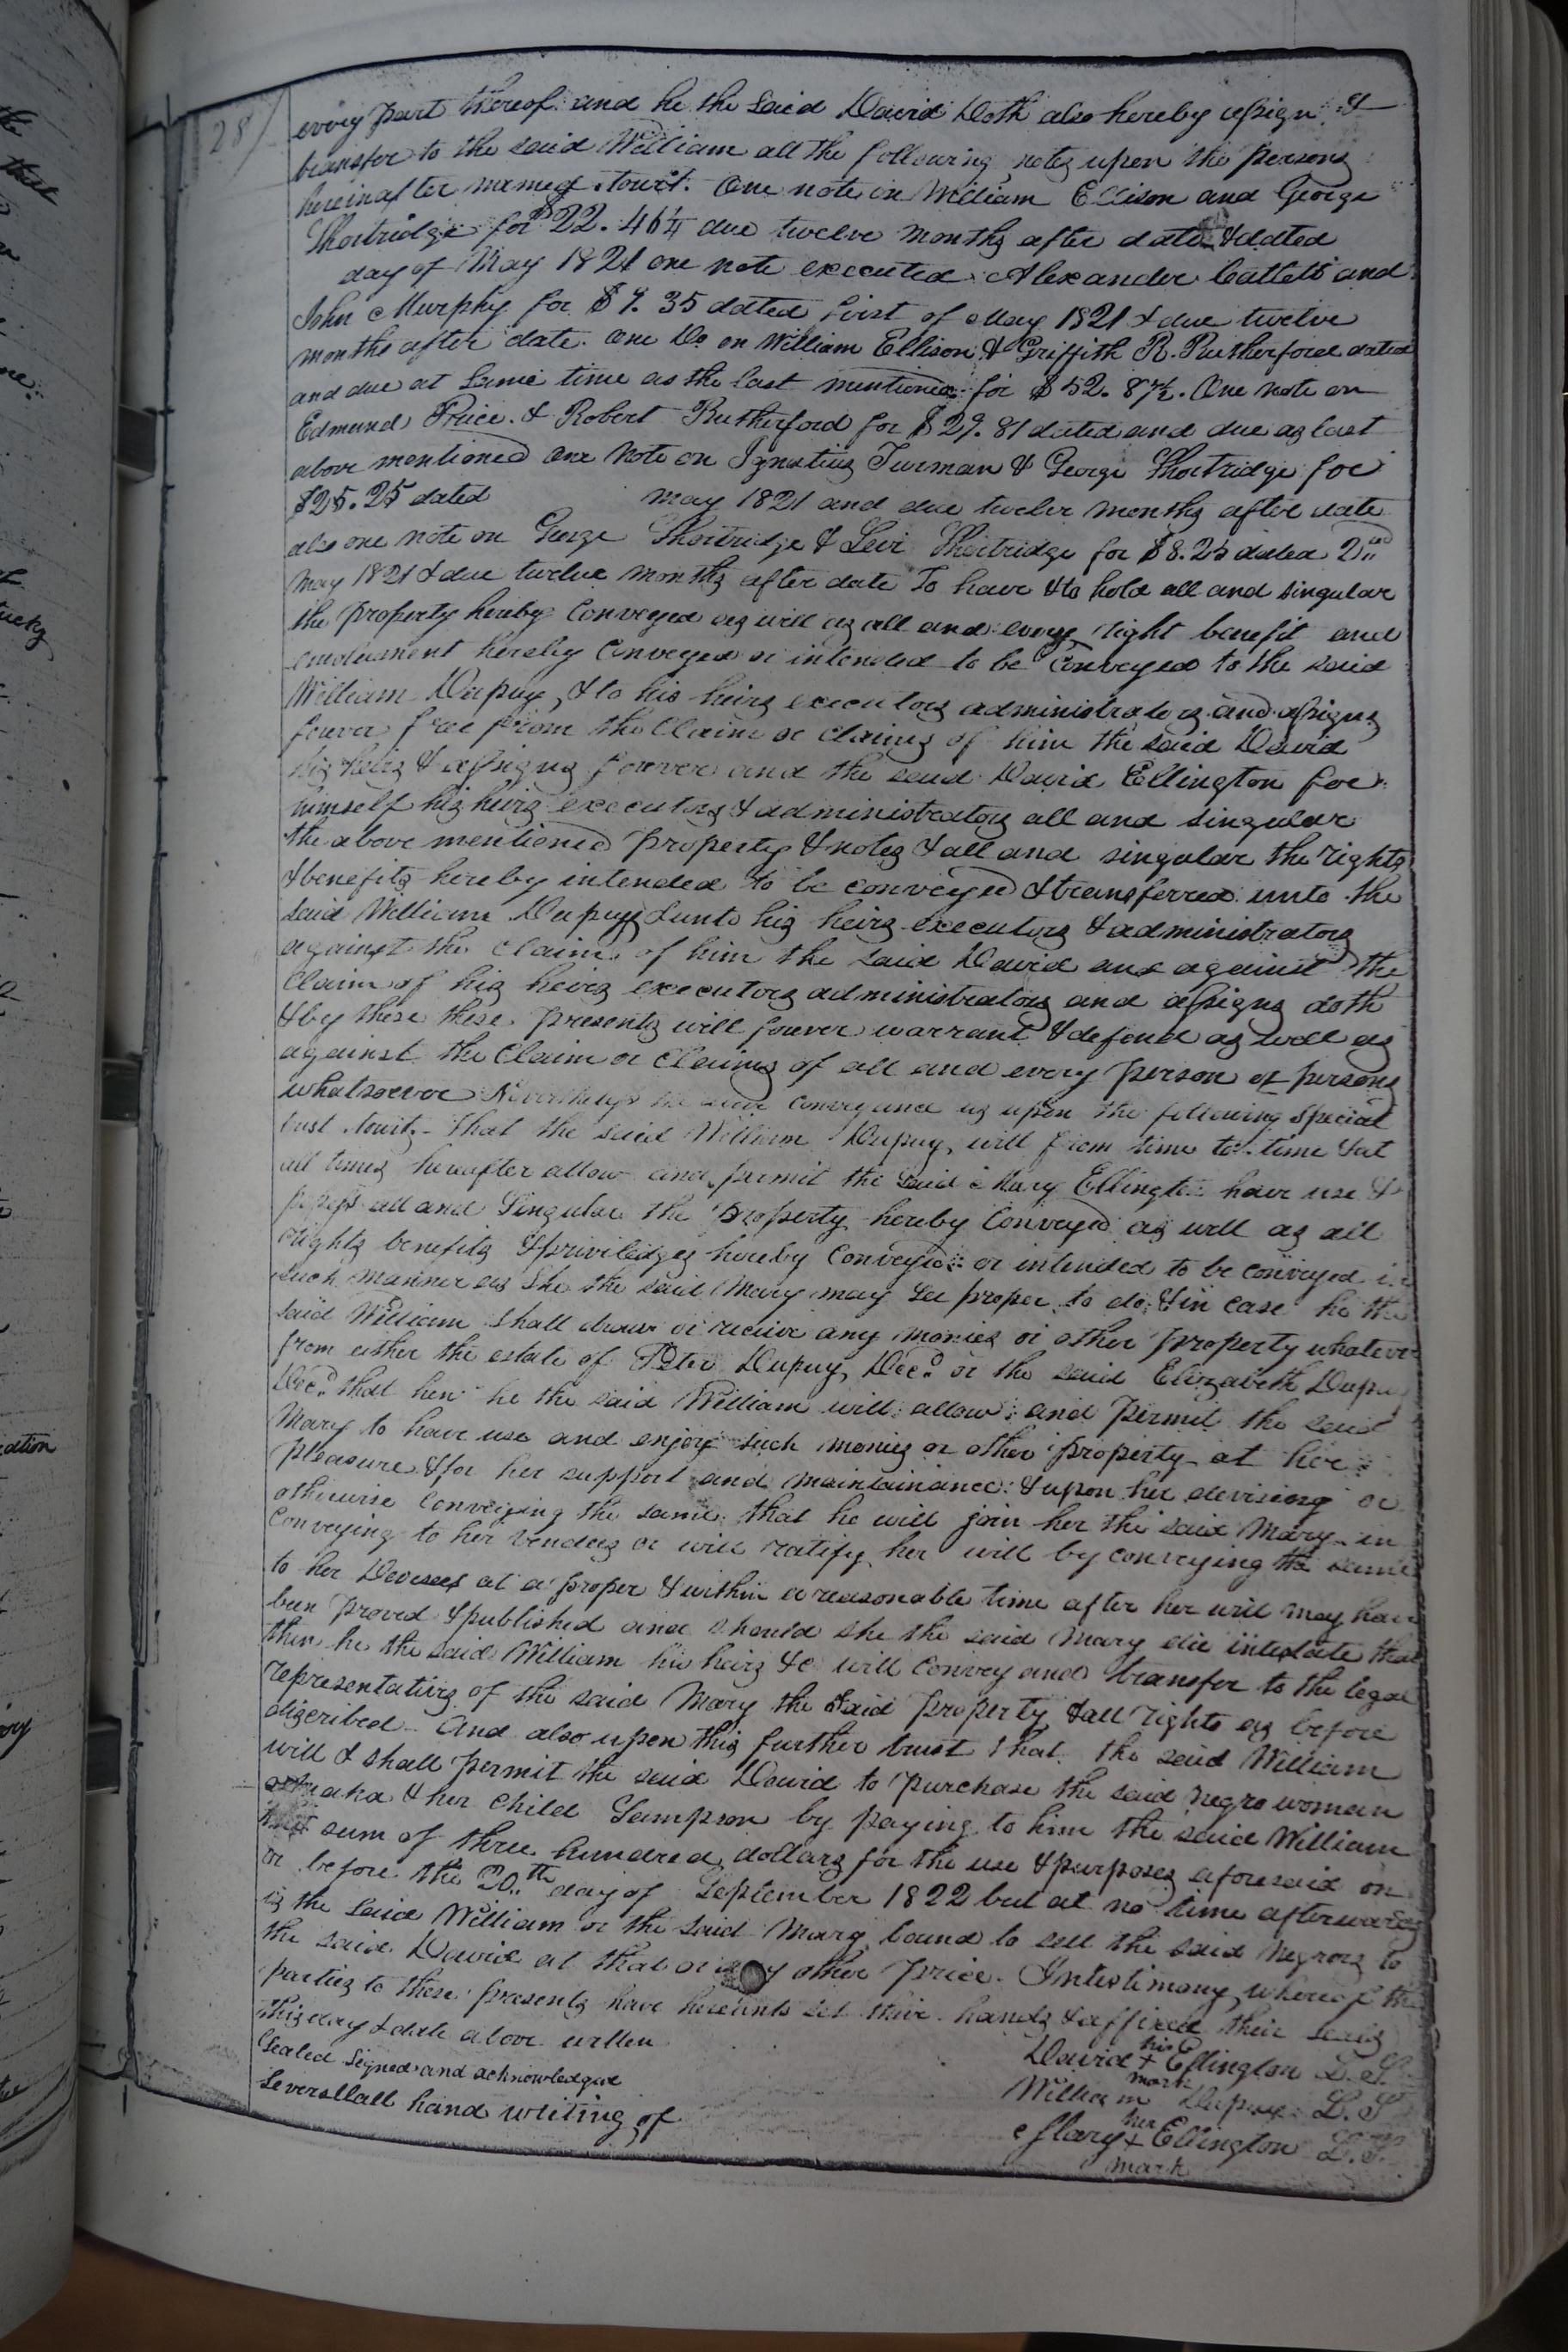 28
every part thereof and he the said David Doth also hereby assign &
transfer to the said William all the following notes upon the persons
hereinafter named towit. One note on William Ellison and George
Shortridge for $22.46¼ due twelve months after date & dated
day of May 1821 one note executed Alexander Catlett and
John Murphy for $9.35 dated first of May 1821 & due twelve
months after date. One Do on William Ellison & Griffith R. Rutherford dated
and due at same time as the last mentioned for $52.87½. One note on
Edmund Price & Robert Rutherford for $29.81 dated and due as last
above mentioned one note on Ignatius Turman & George Shortridge for
$25.25 dated May 1821 and due twelve months after date
also one note on George Shortridge & Levi Shortridge for $8.25 dated 2nd
May 1821 & due twelve months after date To have & to hold all and singular
the property hereby Conveyed as will as all and every right benefit and
emolument hereby Conveyed or intended to be Conveyed to the said
William Dupuy, & to his heirs executors administrators and assigns
forever free from the Claim or claims of him the said David
his heirs & assigns forever and the said David Ellington for
himself his heirs executors & administrators all and singular
the above mentioned property & notes & all and singular the rights
& benefits hereby intended to be conveyed & transferred unto the
said William Dupuy & unto his heirs executors & administrators
against the claim of him the said David and against the
Claim of his heirs executors administrators and assigns doth
& by these these presents will forever warrant & defend as well as
against the Claim or Claims of all and every person or persons
whatsoever Nevertheless the above conveyance is upon the following special
trust towit. That the said William Dupuy, will from time to time & at
all times hereafter allow and permit the said Mary Ellington have use &
possess all and Singular the property hereby Conveyed as will as all
rights benefits & priviledges hereby Conveyed or intended to be conveyed in
such manner as She the said Mary may see proper to do, & in case he the
said William shall draw or receive any monies or other property whatever
from either the estate of Peter Dupuy, Decd or the said Elizabeth Dupuy
Decd that hen he the said William will allow and permit the said
Mary to have use and enjoy such monies or other property at her
pleasure & for her support and maintainance: & upon her devising or
otherwise Conveying the same that he will join her the said Mary in
Conveying to her vendees or will ratify her will by conveying the same
to her Devisees at a proper & within a reasonable time after her will may have
been proved & published and should she the said Mary die intestate that
then he the said William his heirs &c will Convey and transfer to the legal
representatives of the said Mary the said property & all rights as before
discribed. And also upon this further trust that the said William
will & shall permit the said David to purchase the said negro woman
& her Child Sampson by paying to him the said William
sum of three hundred dollars for the use & purposes aforesaid on
or before the 20th day of September 1822 but at no time afterwards
is the said William or the said Mary bound to sell the said negroes to
the said David at that or any other price. Intestimony whereof the
parties to these presents have hereunto set their hands & affixed their seals
this day & date above written
Sealed Signed and acknowledged
Leversllall hand writing of
his
David + Ellington L.S.
mark
William Dupuy L.S
her
Mary + Ellington L.S.
mark